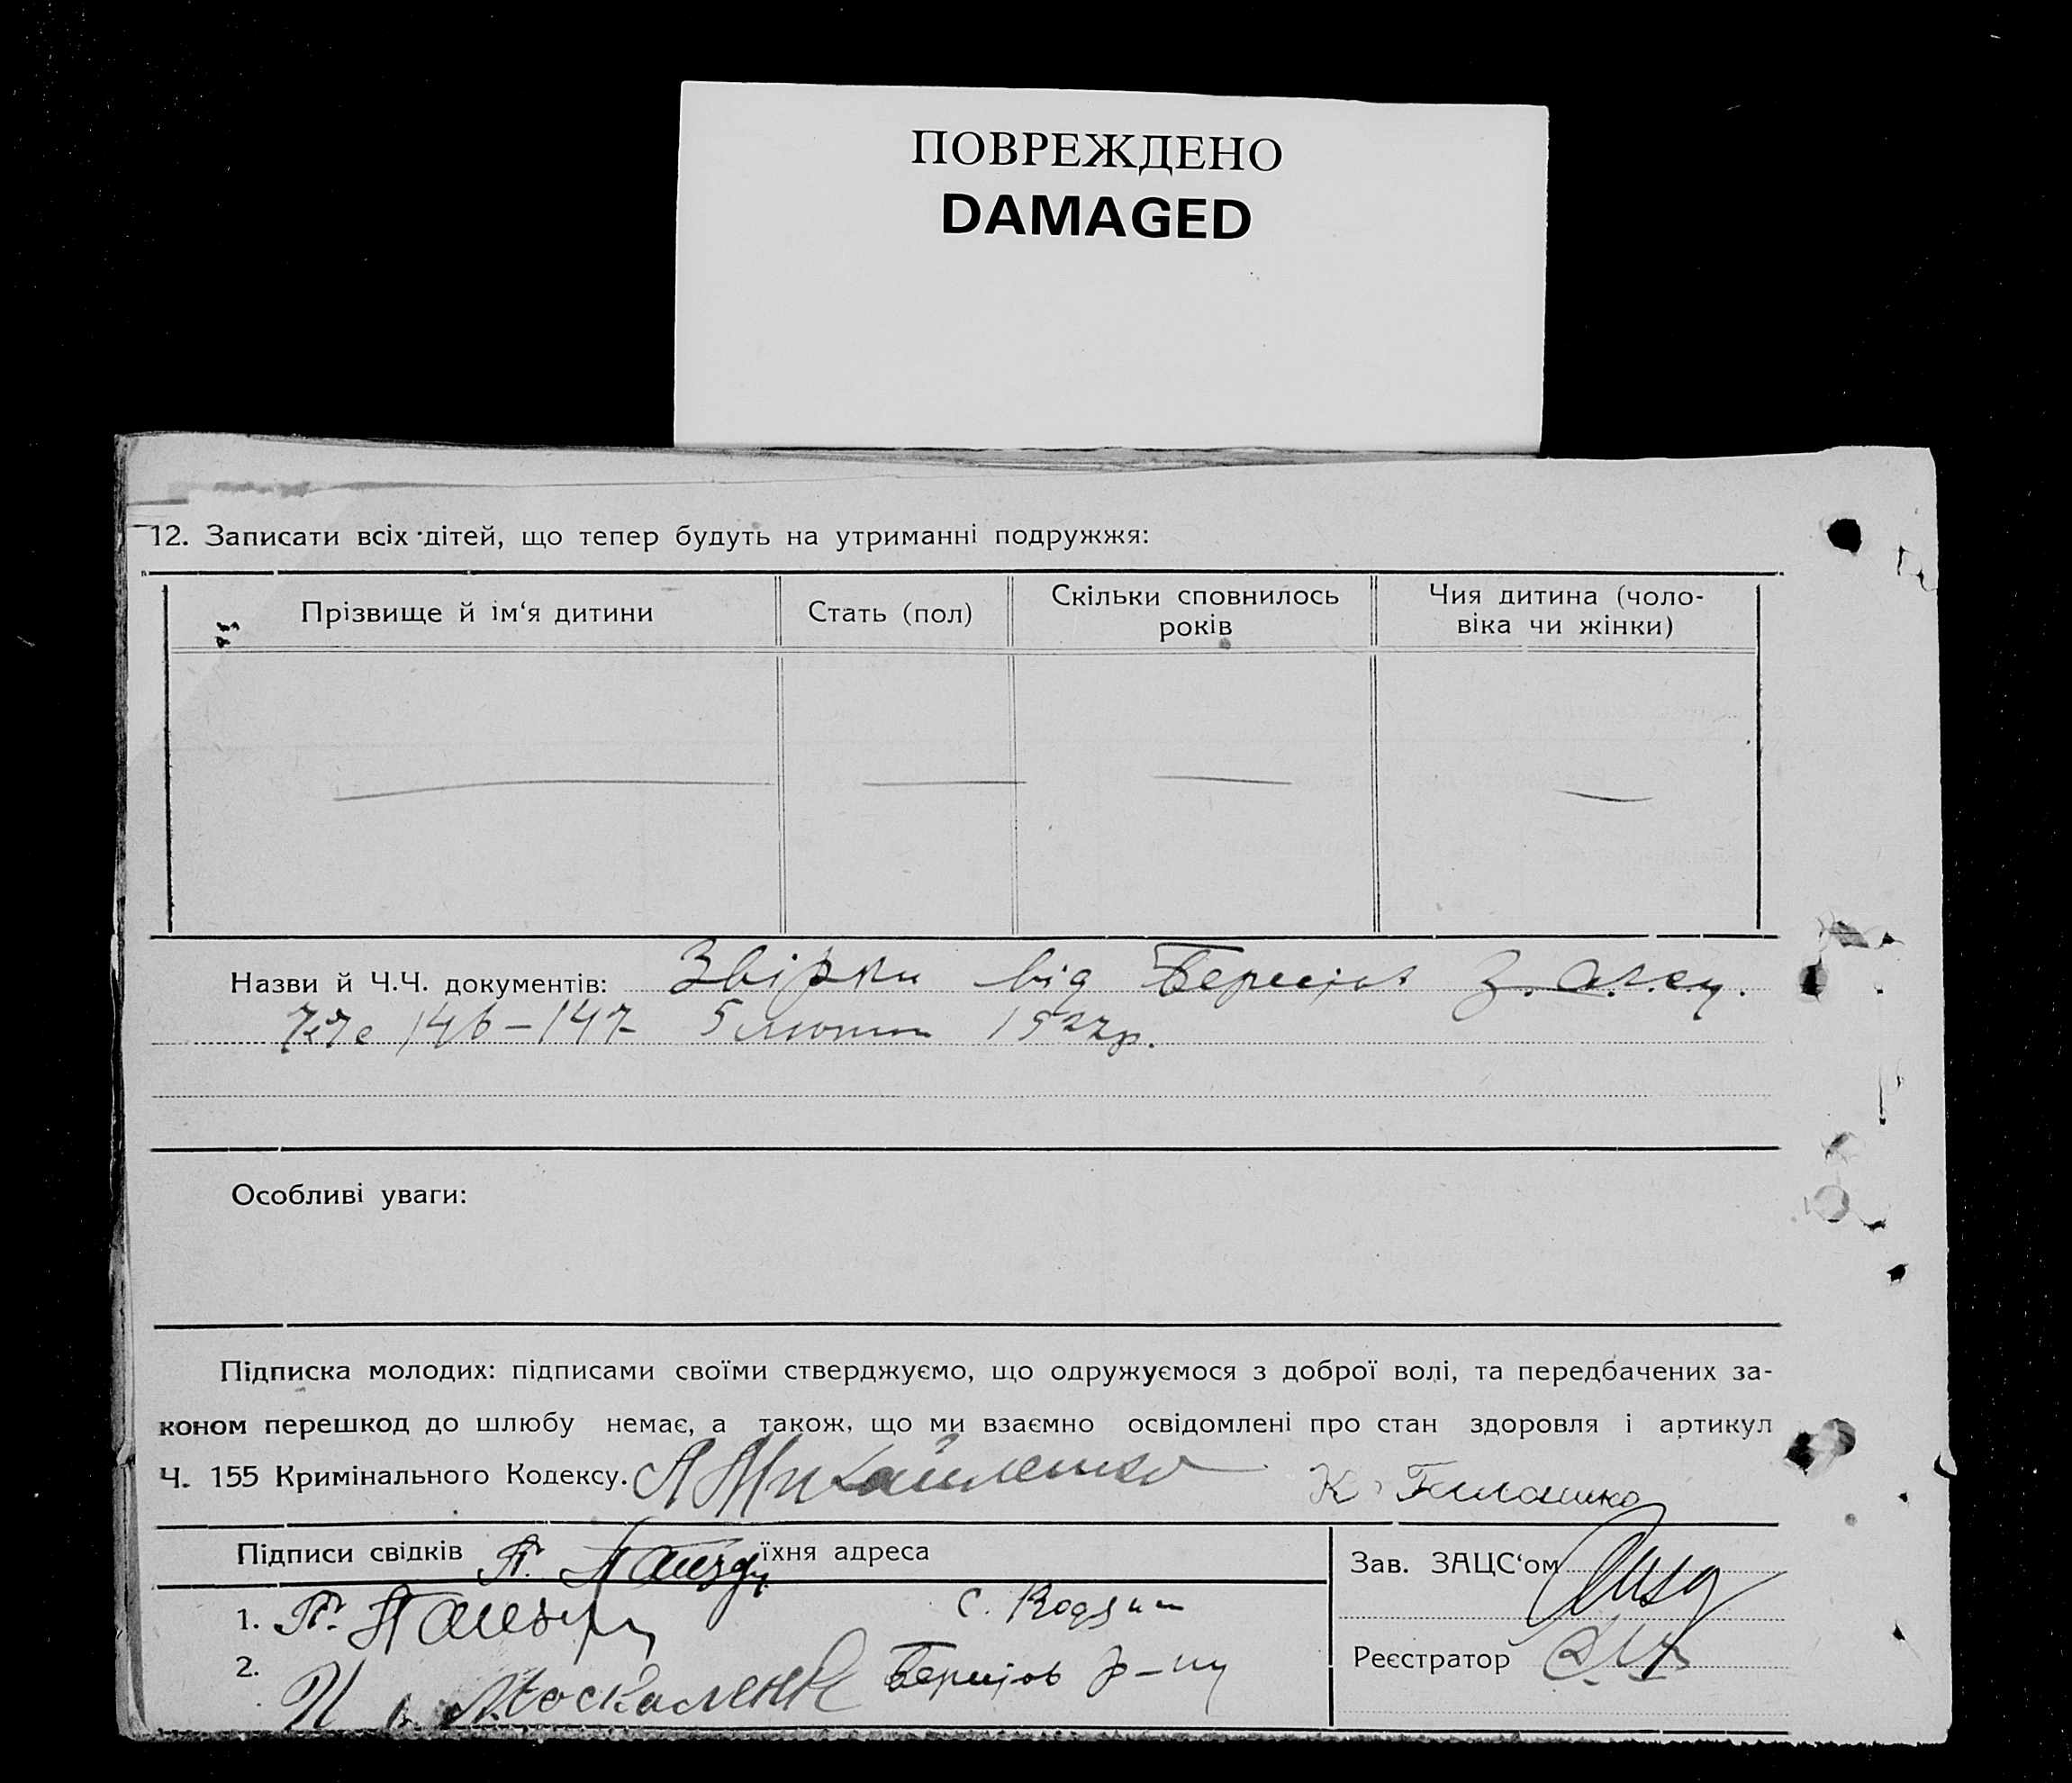 ПОВРЕЖДЕНО
DAMAGED
12. Записати всіх дітей, що тепер будуть на утриманні подружжя:
Прізвище й ім‘я дитини
Стать (пол)
Скільки сповнилось
років
Чия дитина (чоло-
віка чи жінки)
Назви й Ч.Ч. документів: Звірки від
146–147 5 лютого 1927р.
Особливі уваги:
Підписка молодих: підписами своїми стверджуємо, що одружуємося з доброї волі, та передбачених за-
коном перешкод до шлюбу немає, а також, що ми взаємно освідомлені про стан здоровля і артикул
Ч. 155 Кримінального Кодексу. А Михайленко К.
Підписи свідків П. їхня адреса
Зав. ЗАЦС‘ом
1. П. с.
2. Москаленко р–ну
Реєстратор